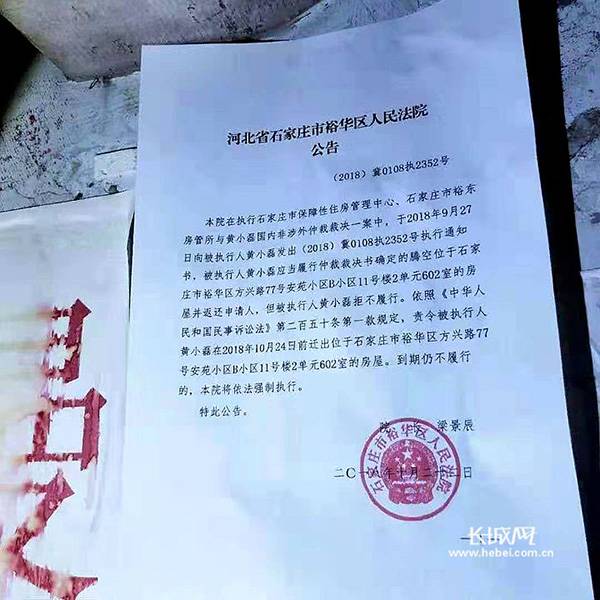 河北省石家庄市裕华区人民法院
公告
（2018）冀0108执2352号
本院在执行石家庄市保障性住房管理中心、石家庄市裕东
房管所与黄小磊国内非涉外仲裁裁决一案中，于2018年9月27
日向被执行人黄小磊发出（2018）冀0108执2352号执行通知
书，被执行人黄小磊应当履行仲裁裁决书确定的腾空位于石家
庄市裕华区方兴路77号安苑小区B小区11号楼2单元602室的房
屋并返还申请人，但被执行人黄小磊拒不履行。依照《中华人
民和国民事诉讼法》第二百五十条第一款规定，责令被执行人
黄小磊在2018年10月24日前迁出位于石家庄市裕华区方兴路77
号安苑小区B小区11号楼2单元602室的房屋。到期仍不履行
的，本院将依法强制执行。
特此公告。
院 长 梁景辰
二〇一八年十月二十二日
石家庄市裕华区人民法院
长城网
www.hebei.com.cn